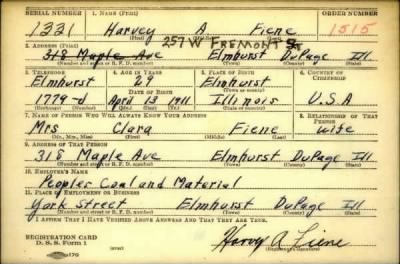 SERIAL NUMBER 1. NAME (Print) ORDER NUMBER
1331 Harvey A Fiene 1515
(First) (Middle) (Last)
257 W FREMONT St
2. ADDRESS (Print)
318 Maple Ave Elmhurst DuPage Ill.
(Number and street or R. F. D. number) (Town) (County) (State)
3. TELEPHONE 4. AGE IN YEARS 5. PLACE OF BIRTH 6. COUNTRY OF CITIZENSHIP
Elmhurst 29 Elmhurst
DATE OF BIRTH
1779-d April 13 1911 Illinois U.S.A
(Exchange) (Number) (Mo.) (Day) (Yr.) (State or country)
7. NAME OF PERSON WHO WILL ALWAYS KNOW YOUR ADDRESS 8. RELATIONSHIP OF THAT PERSON
Mrs Clara Fiene wife
(Mr., Mrs., Miss) (First) (Middle) (Last)
9. ADDRESS OF THAT PERSON
318 Maple Ave Elmhurst DuPage Ill
(Number and street or R. F. D. number) (Town) (County) (State)
10. EMPLOYER'S NAME
Peoples Coal and Material
11. PLACE OF EMPLOYMENT OR BUSINESS
York Street Elmhurst DuPage Ill
(Number and street or R. F. D. number) (Town) (County) (State)
I AFFIRM THAT I HAVE VERIFIED ABOVE ANSWERS AND THAT THEY ARE TRUE.
REGISTRATION CARD
D. S. S. Form 1
Harvey A Fiene
(Registrant's signature)